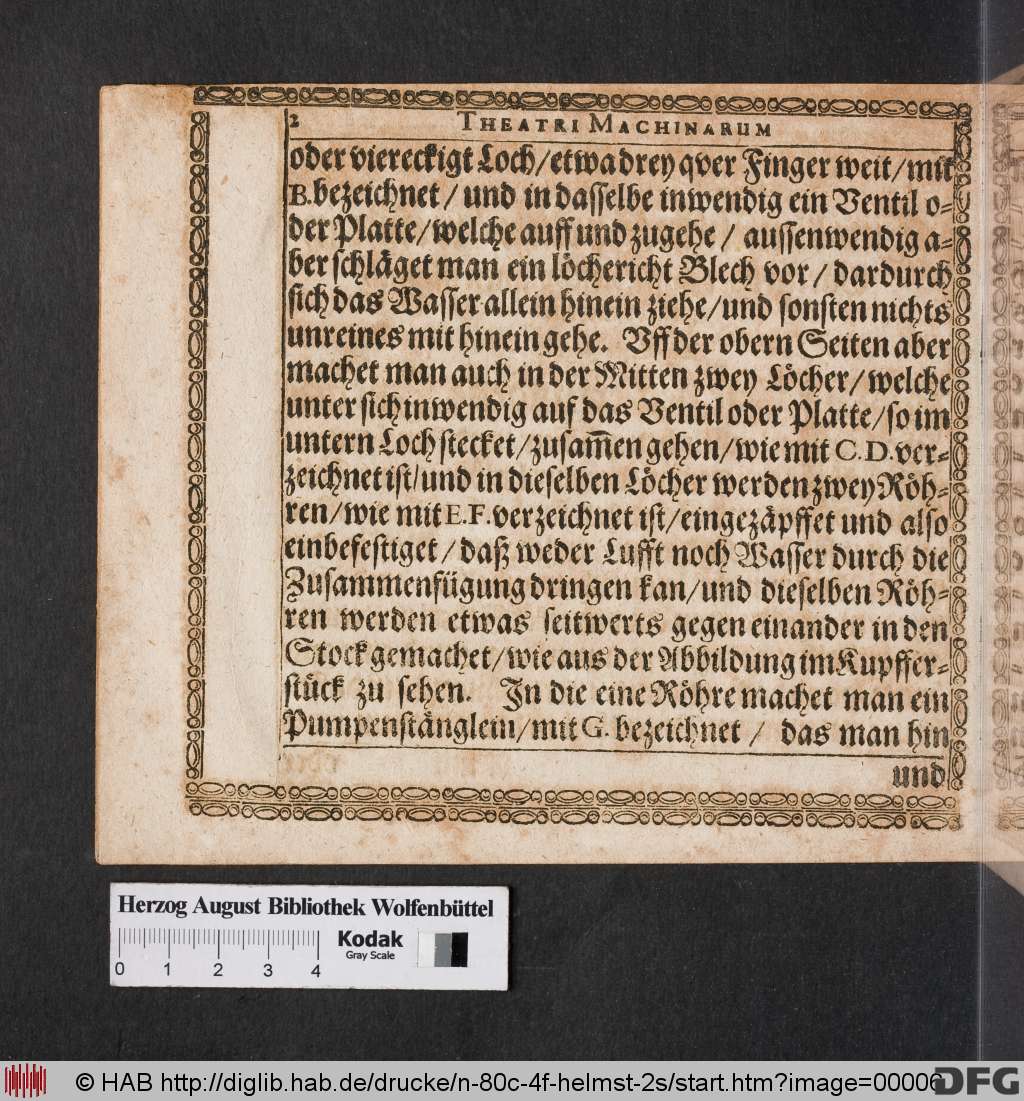 2
THEATRI MACHINARUM
oder viereckigt Loch/etwa drey qver Finger weit/mit
B. bezeichnet/ und in dasselbe inwendig ein Ventil o-
der Platte/welche auff und zugehe/ aussenwendig a-
ber schläget man ein löchericht Blech vor/ dardurch
sich das Wasser allein hinein ziehe/und sonsten nichts
unreines mit hinein gehe. Vff der obern Seiten aber
machet man auch in der Mitten zwey Löcher/welche
unter sich inwendig auf das Ventil oder Platte/so im
untern Loch stecket/zusam̅en gehen/wie mit C. D. ver-
zeichnet ist/und in dieselben Löcher werden zwey Röh-
ren/wie mit E. F. verzeichnet ist/eingezäpffet und also
einbefestiget/daß weder Lufft noch Wasser durch die
Zusammenfügung dringen kan/und dieselben Röh-
ren werden etwas seitwerts gegen einander in den
Stock gemachet/wie aus der Abbildung im Kupffer-
stück zu sehen. In die eine Röhre machet man ein
Pumpenstänglein/mit G. bezeichnet/ das man hin
und
Herzog August Bibliothek Wolfenbüttel
Kodak
Gray Scale
0 1 2 3 4
© HAB http://diglib.hab.de/drucke/n-80c-4f-helmst-2s/start.htm?image=00006
DFG